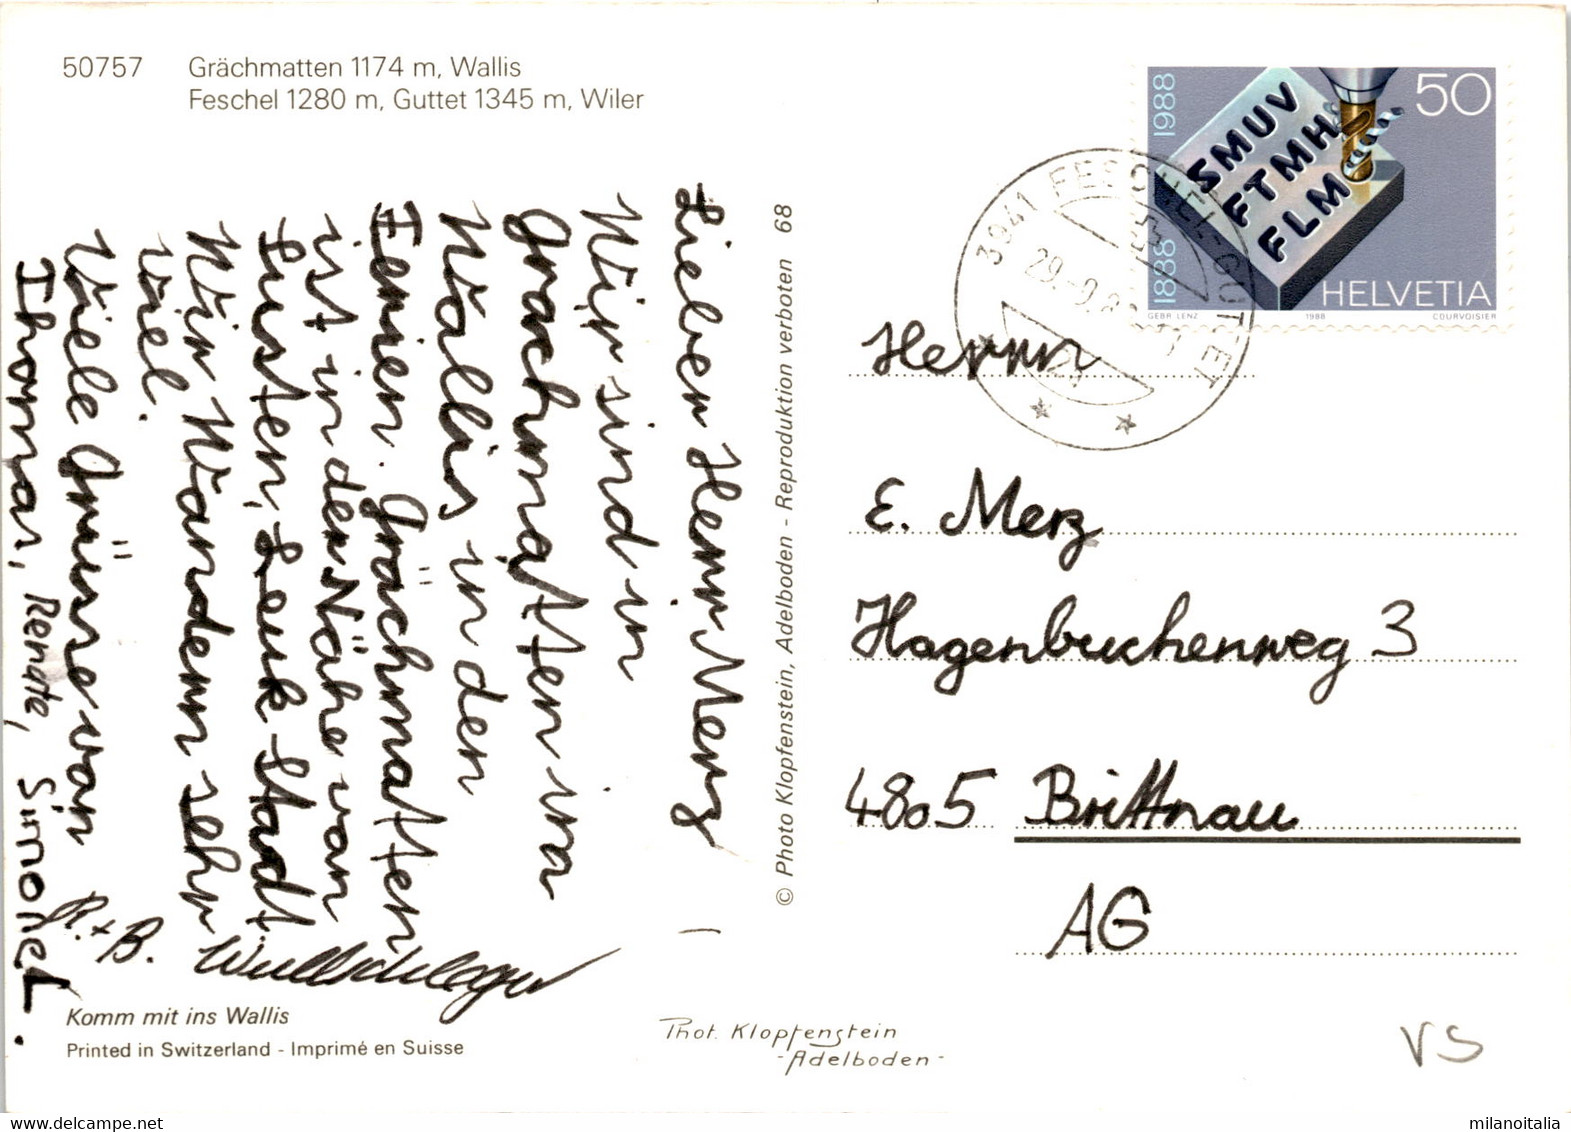 50757 Grächmatten 1174 m, Wallis
Feschel 1280 m, Guttet 1345 m, Wiler
Lieber Herr Merz
Wir sind in
Grächmatten im
Wallis in den
Ferien. Grächmatten
ist in der Nähe von
Susten, Leuk-Stadt.
Wir Wandern sehr
viel.
Viele Grüsse von
Thomas, Renate, Simone.
R. + B. Wullschleger
Komm mit ins Wallis
Printed in Switzerland - Imprimé en Suisse
© Photo Klopfenstein, Adelboden - Reproduktion verboten 68
Phot. Klopfenstein
-Adelboden-
1888 1988
50
SMUV
FTMH
FLM
HELVETIA
GEBR LENZ 1988 COURVOISIER
3941 FESCHEL-GUTTET
29.-9.
Herrn
E. Merz
Hagenbuchenweg 3
4805 Brittnau
AG
VS
milanoitalia